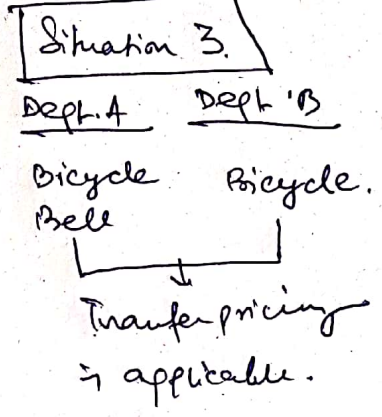 Situation 3.
Dept. A Dept 'B
Bicycle Bicycle.
Bell
Transfer pricing
is applicable.